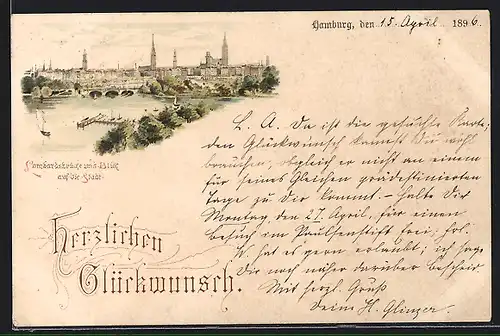 Hamburg, den 15. April 1896.
Lombardsbrücke und Blick
auf die Stadt.
L. A. Da ist die gesuchte Karte;
den Glückwunsch kannst Du wohl
brauchen, obgleich er nicht an einem
für seines Gleichen prädestinirten
Tage zu Dir kommt. - Halte Dir
Montag, den 27. April, für einen
Besuch im Paulsenstift frei; Frl.
W. hat es gern erlaubt; ich sage
Dir noch näher darüber Bescheid.
Mit herzl. Gruß
Deine H. Glinzer.
Herzlichen
Glückwunsch.